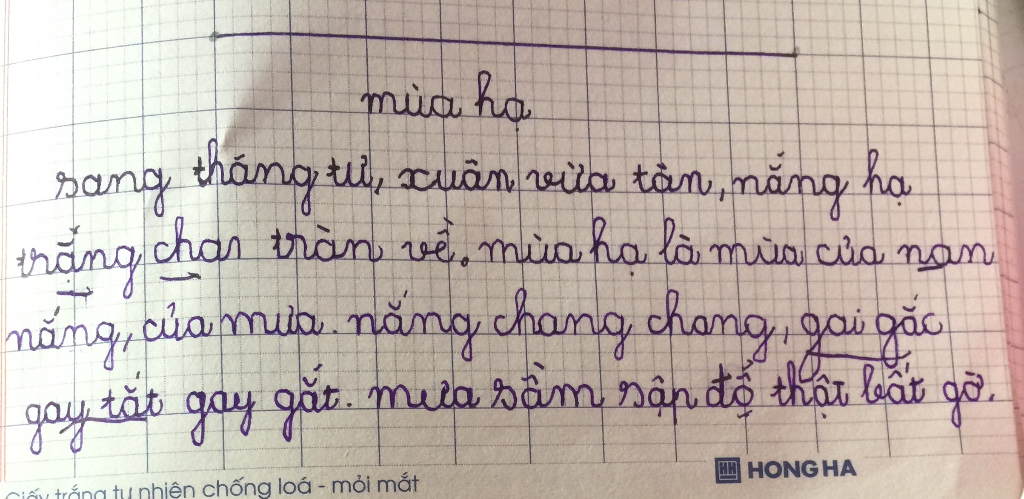 mùa hạ
sang tháng tư, xuân vừa tàn, nắng hạ
trắng chan tràn về. mùa hạ là mùa của nan
nắng, của mưa. nắng chang chang, gai gắc
gay tắt gay gắt. mưa sầm sập đổ thật bất gờ.
HH HONG HA
Giấy trắng tự nhiên chống loá - mỏi mắt